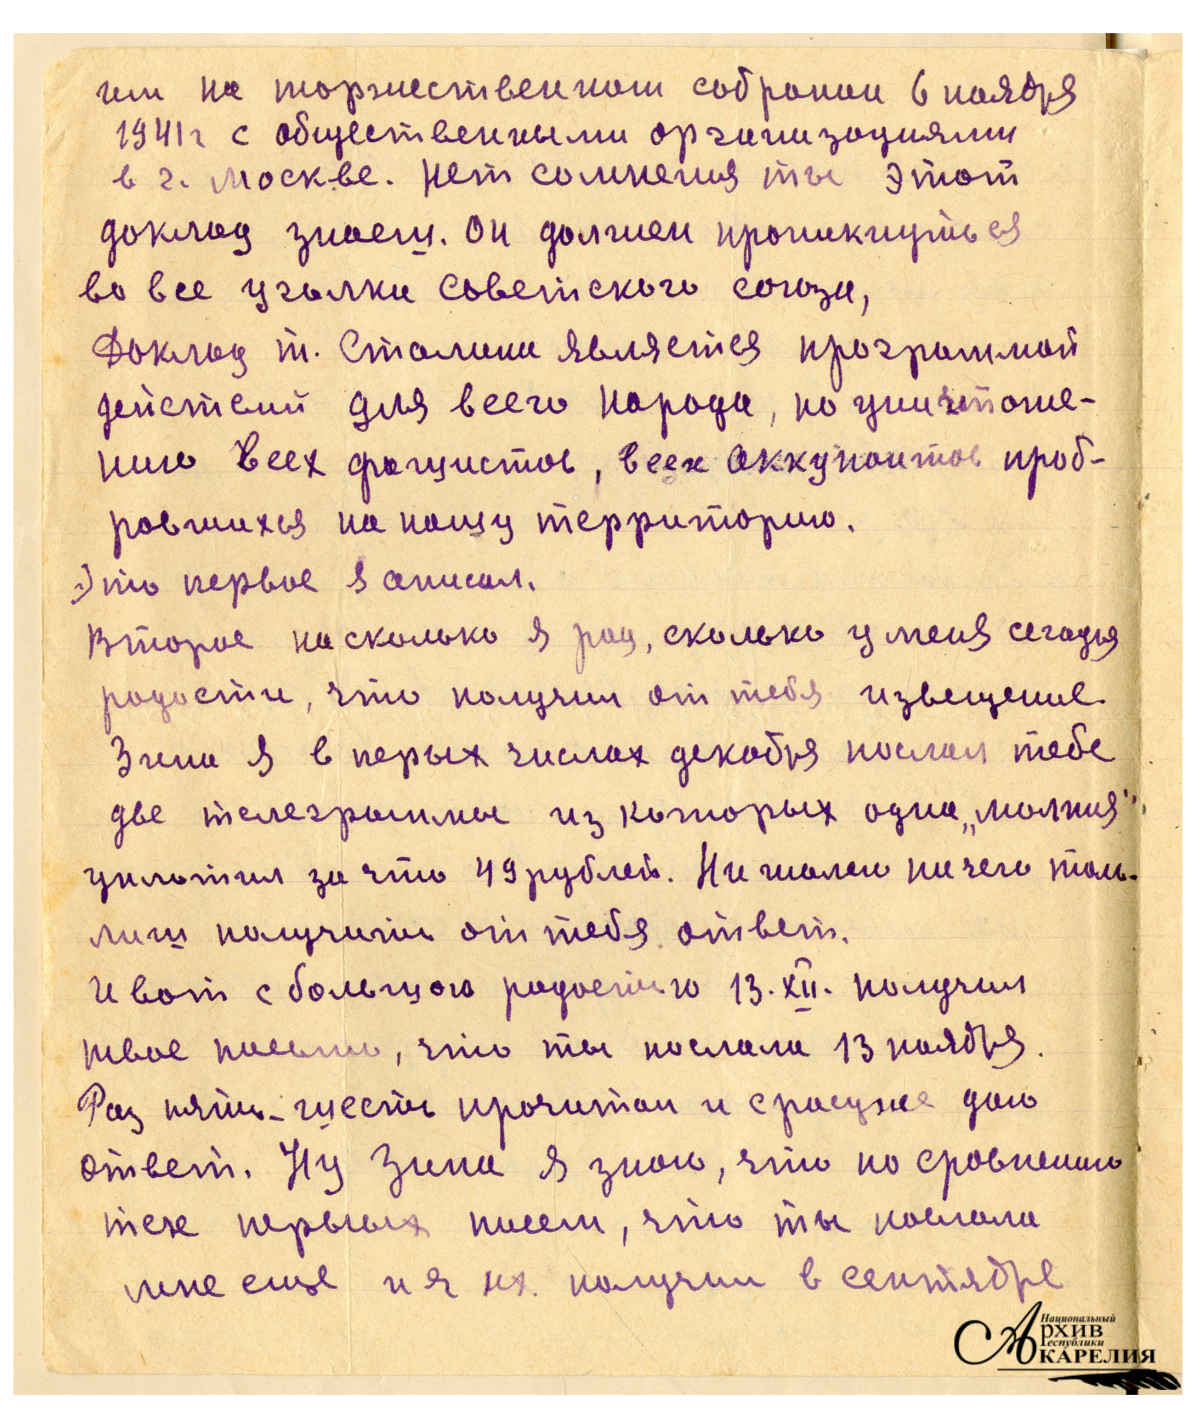 им на торжественном собрании 6 ноября
1941г с общественными организациями
в г. Москве. Нет сомнения ты этот
доклад знаеш. Он должен проникнуться
во все уголки Советского союза,
Доклад т. Сталина является программой
действий для всего народа, по уничтоже-
нию всех фашистов, всех оккупантов проб-
ровшихся на нашу территорию.
Это первое я описал.
Второе насколько я рад, сколько у меня сегодня
радости, что получил от тебя извещение.
Зина я в перых числах декабря послал тебе
две телеграммы из которых одна „молния"
уплотил за что 49 рублей. Ни жалею ничего толь-
лиш получить от тебя ответ.
И вот с большою радостью 13.XII. получил
твое письмо, что ты послала 13 ноября.
Раз пять-шесть прочитал и сразуже даю
ответ. Ну Зина я знаю, что по сровнению
тех первых писем, что ты послала
мне еще и я их получил в сентябре
Национальный
Архив
Республики
Карелия